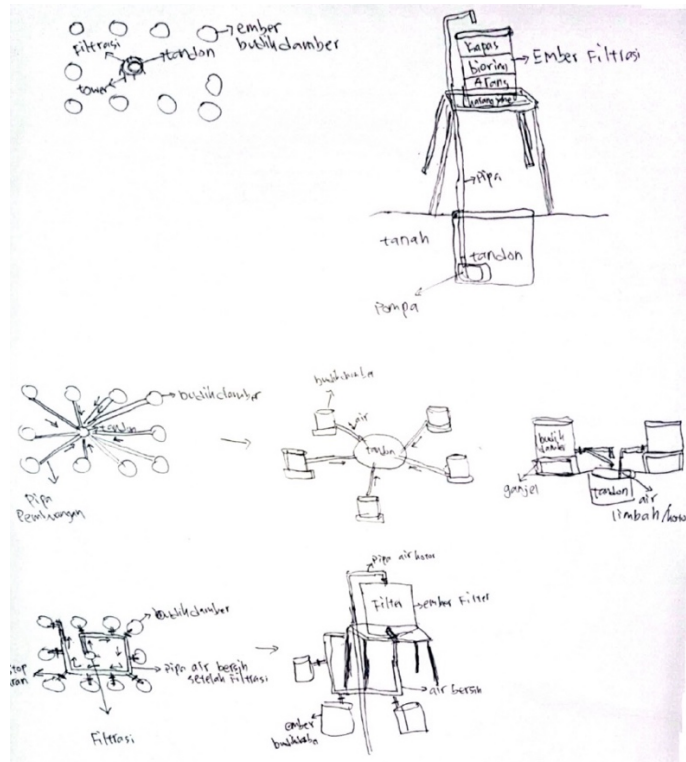 ember
budikdamber
Filtrasi
tandon
tower
Kapas
biorin
Arang
Ember Filtrasi
Pipa
tanah
tandon
Pompa
budikdamber
tandon
Pipa
Pembuangan
air
tandon
budik
ganjel
tandon
air
limbah/kotor
budikdamber
pipa air bersih
setelah filtrasi
Filtrasi
pipa air kotor
Filter
ember Filter
air bersih
ember